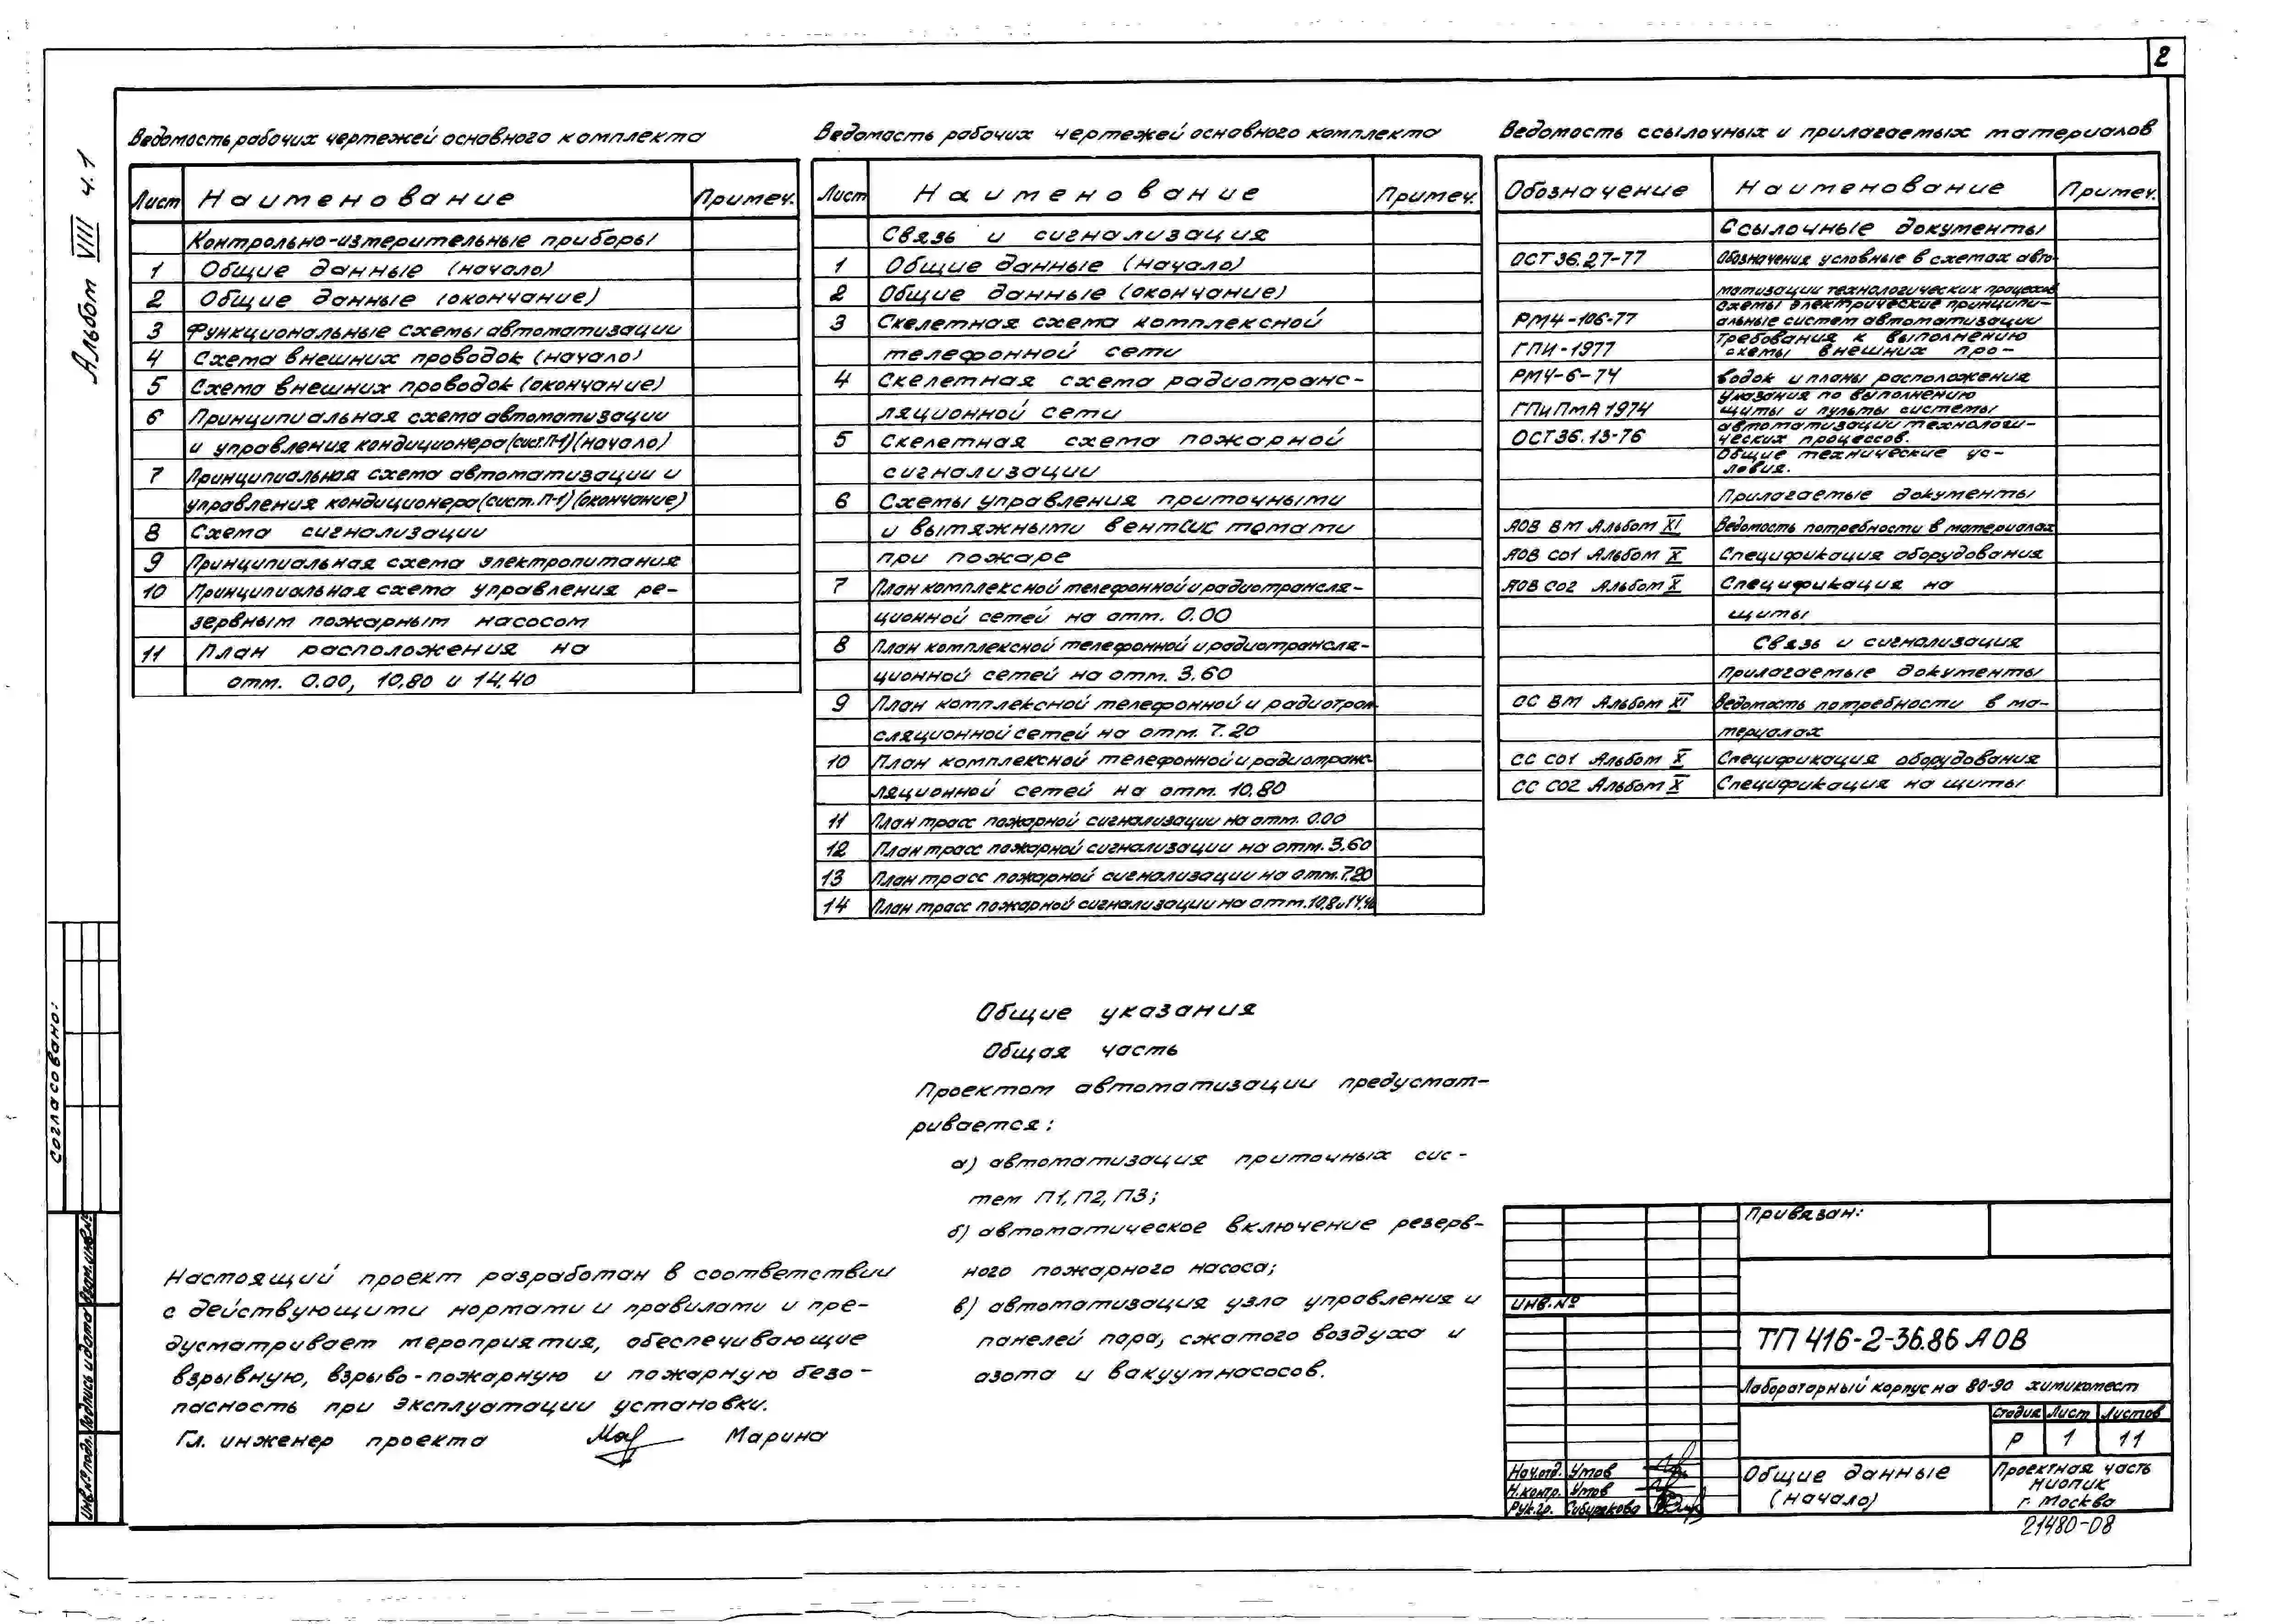 2
Альбом VIII ч.1
Ведомость рабочих чертежей основного комплекта
Лист Наименование Примеч.
Контрольно-измерительные приборы
1 Общие данные (начало)
2 Общие данные (окончание)
3 Функциональные схемы автоматизации
4 Схема внешних проводок (начало)
5 Схема внешних проводок (окончание)
6 Принципиальная схема автоматизации
и управления кондиционера (сист.П-1) (начало)
7 Принципиальная схема автоматизации и
управления кондиционера (сист.П-1) (окончание)
8 Схема сигнализации
9 Принципиальная схема электропитания
10 Принципиальная схема управления ре-
зервным пожарным насосом
11 План расположения на
отм. 0.00, 10,80 и 14,40
Ведомость рабочих чертежей основного комплекта
Лист Наименование Примеч.
Связь и сигнализация
1 Общие данные (начало)
2 Общие данные (окончание)
3 Скелетная схема комплексной
телефонной сети
4 Скелетная схема радиотранс-
ляционной сети
5 Скелетная схема пожарной
сигнализации
6 Схемы управления приточными
и вытяжными вентсистемами
при пожаре
7 План комплексной телефонной и радиотрансля-
ционной сетей на отм. 0.00
8 План комплексной телефонной и радиотрансля-
ционной сетей на отм. 3.60
9 План комплексной телефонной и радиотран-
сляционной сетей на отм. 7.20
10 План комплексной телефонной и радиотранс-
ляционной сетей на отм. 10.80
11 План трасс пожарной сигнализации на отм. 0.00
12 План трасс пожарной сигнализации на отм. 3.60
13 План трасс пожарной сигнализации на отм. 7.20
14 План трасс пожарной сигнализации на отм. 10,8 и 14,40
Ведомость ссылочных и прилагаемых материалов
Обозначение Наименование Примеч.
Ссылочные документы
ОСТ 36.27-77 Обозначения условные в схемах авто-
матизации технологических процессов
Схемы электрические принципи-
РМ4-106-77 альные систем автоматизации
Требования к выполнению
ГПИ-1977 схемы внешних про-
РМ4-6-74 водок и планы расположения
Указания по выполнению
ГПиПмА 1974 щиты и пульты системы
автоматизации технологи-
ОСТ 36.13-76 ческих процессов.
Общие технические ус-
ловия.
Прилагаемые документы
АОВ ВМ Альбом XI Ведомость потребности в материалах
АОВ СО1 Альбом X Спецификация оборудования
АОВ СО2 Альбом X Спецификация на
щиты
Связь и сигнализация
Прилагаемые документы
СС ВМ Альбом XI Ведомость потребности в ма-
териалах
СС СО1 Альбом X Спецификация оборудования
СС СО2 Альбом X Спецификация на щиты
Общие указания
Общая часть
Проектом автоматизации предусмат-
ривается:
а) автоматизация приточных сис-
тем П1, П2, П3;
б) автоматическое включение резерв-
ного пожарного насоса;
в) автоматизация узла управления и
панелей пара, сжатого воздуха и
азота и вакуумнасосов.
Настоящий проект разработан в соответствии
с действующими нормами и правилами и пре-
дусматривает мероприятия, обеспечивающие
взрывную, взрыво-пожарную и пожарную безо-
пасность при эксплуатации установки.
Гл. инженер проекта Марина
Согласовано:
Инв.№ подл. Подпись и дата Взам.инв.№
Привязан:
Инв.№
ТП 416-2-36.86 АОВ
Лабораторный корпус на 80-90 химикомест
Стадия Лист Листов
Р 1 11
Нач.отд. Умов
Н.контр. Умов
Рук.гр. Сибирякова
Общие данные
(начало)
Проектная часть
НИОПИК
г. Москва
21480-08